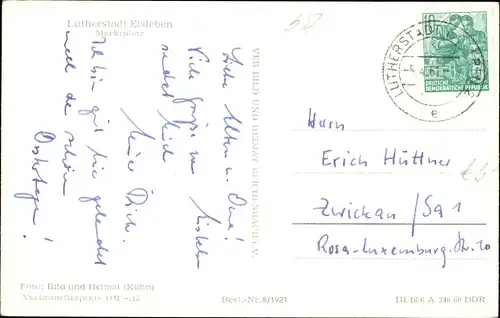 Lutherstadt Eisleben
Marktplatz
Liebe Eltern u. Oma!
Viele Grüsse aus Eisleben
sendet Euch
Eure
Ich bin gut hier gelandet
nach den schönen
Ostertagen!
VEB BILD UND HEIMAT REICHENBACH I. V.
10
DEUTSCHE
DEMOKRATISCHE REPUBLIK
LUTHERSTADT
e
Herrn
Erich Hüttner
Zwickau / Sa 1
Rosa-Luxemburg-Str. 20
Foto: Bild und Heimat (Kühn)
Verbraucherpreis DM -,15
Best.-Nr. 8/1921
III 10 6 A 246 60 DDR